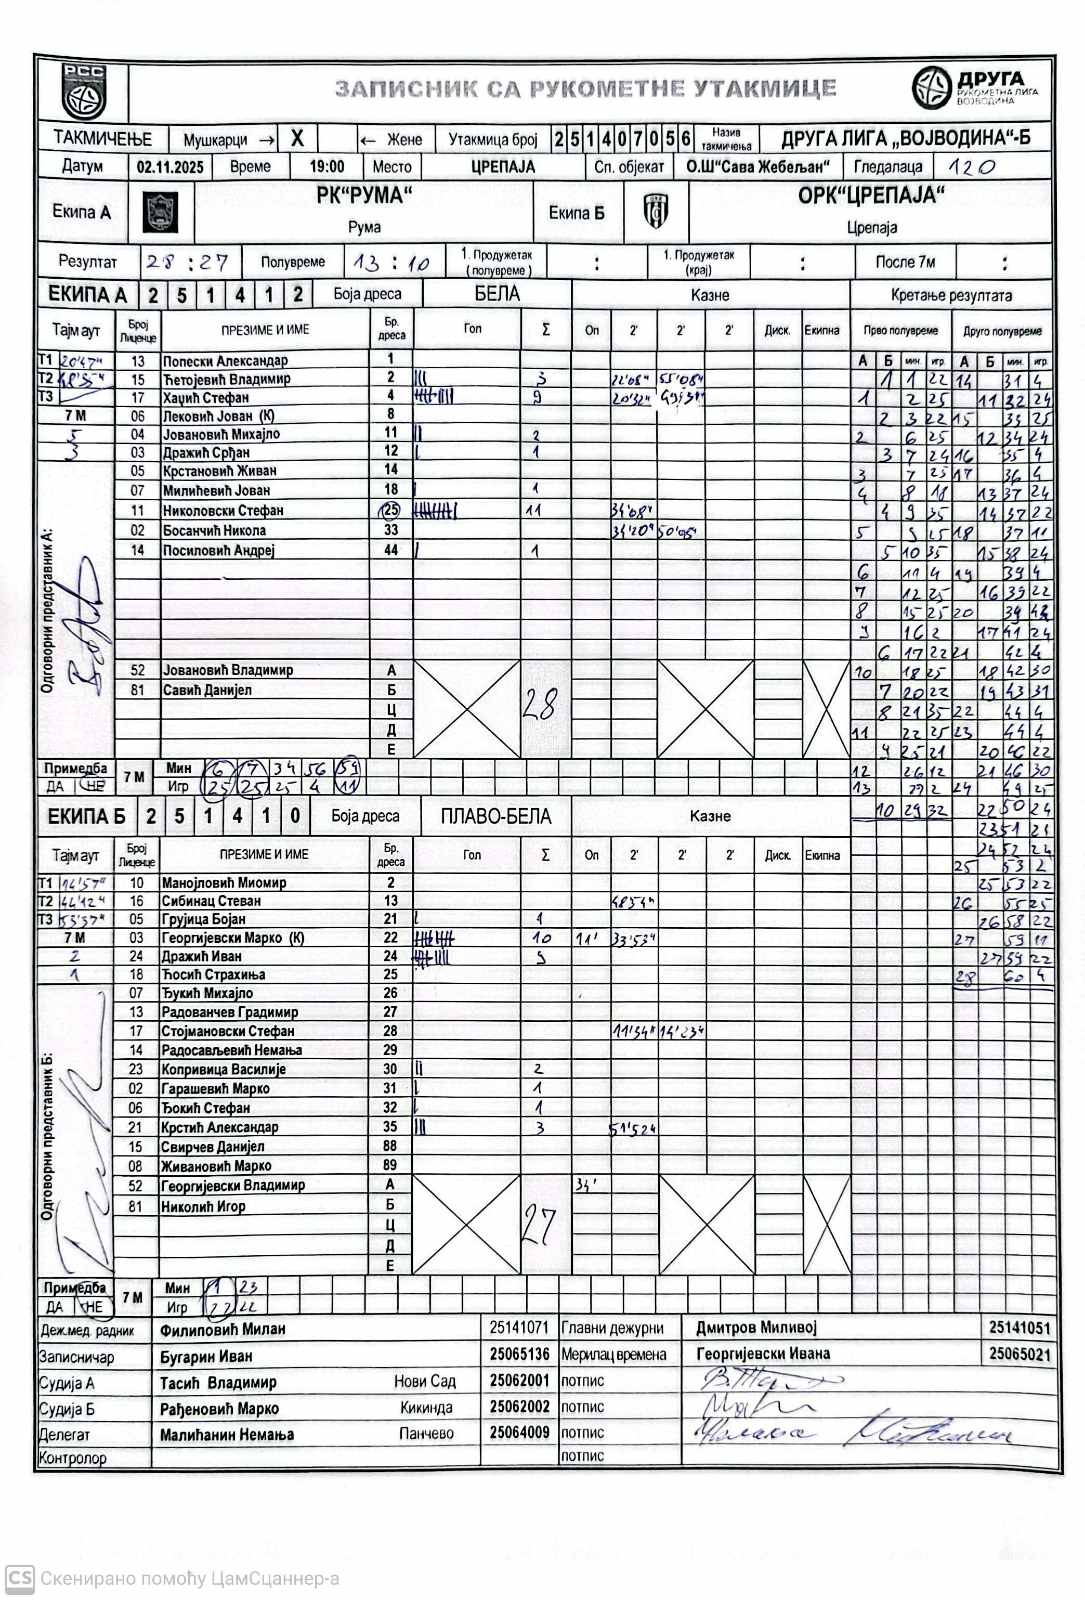 РСС
ЗАПИСНИК СА РУКОМЕТНЕ УТАКМИЦЕ
ДРУГА
РУКОМЕТНА ЛИГА
ВОЈВОДИНА
ТАКМИЧЕЊЕ Мушкарци → X ← Жене Утакмица број 2 5 1 4 0 7 0 5 6 Назив такмичења ДРУГА ЛИГА „ВОЈВОДИНА“-Б
Датум 02.11.2025 Време 19:00 Место ЦРЕПАЈА Сп. објекат О.Ш“Сава Жебељан“ Гледалаца 120
Екипа А РК“РУМА“ Рума Екипа Б ОРК“ЦРЕПАЈА“ Црепаја
Резултат 28 : 27 Полувреме 13 : 10 1. Продужетак (полувреме) : 1. Продужетак (крај) : После 7м :
ЕКИПА А 2 5 1 4 1 2 Боја дреса БЕЛА Казне Кретање резултата
Тајм аут Број Лиценце ПРЕЗИМЕ И ИМЕ Бр. дреса Гол Σ Оп 2' 2' 2' Диск. Екипна Прво полувреме Друго полувреме
А Б мин. игр. А Б мин. игр.
Т1 20'47" 13 Попески Александар 1
Т2 15 Ћетојевић Владимир 2 3 22'08" 55'08"
Т3 17 Хаџић Стефан 4 9 20'32"
7 М 06 Лековић Јован (К) 8
5 04 Јовановић Михајло 11 2
3 03 Дражић Срђан 12 1
05 Крстановић Живан 14
07 Милићевић Јован 18 1
11 Николовски Стефан 25 11 34'08"
02 Босанчић Никола 33 34'20" 50'05"
14 Посиловић Андреј 44 1
Одговорни представник А:
52 Јовановић Владимир А
81 Савић Данијел Б
Ц
Д
Е
28
1 1 22 14 31 4
1 2 25 11 32 24
2 3 22 15 33 25
2 6 25 12 34 24
3 7 24 16 35 4
3 7 25 17 36 4
4 8 18 13 37 24
4 9 35 14 37 22
5 9 25 18 37 11
5 10 35 15 38 24
6 11 4 19 39 4
7 12 25 16 39 22
8 15 25 20 39
9 16 2 17 41 24
6 17 22 21 42 4
10 18 25 18 42 30
7 20 22 19 43 31
8 21 35 22 44 4
11 22 25 23 44 4
9 25 21 20 46 22
12 26 12 21 46 30
13 2 24 49 25
10 29 32 22 50 24
23 51 21
24 52 24
25 53 2
25 53 22
26 55 25
26 58 22
27 59 11
27 59 22
28 60 4
Примедба ДА НЕ 7 М Мин 6 7 34 56 59
Игр 25 25 25 4 11
ЕКИПА Б 2 5 1 4 1 0 Боја дреса ПЛАВО-БЕЛА Казне
Тајм аут Број Лиценце ПРЕЗИМЕ И ИМЕ Бр. дреса Гол Σ Оп 2' 2' 2' Диск. Екипна
Т1 14'57" 10 Манојловић Миомир 2
Т2 44'12" 16 Сибинац Стеван 13 48'54"
Т3 53'37" 05 Грујица Бојан 21 1
7 М 03 Георгијевски Марко (К) 22 10 11' 33'53"
2 24 Дражић Иван 24 9
1 18 Ћосић Страхиња 25
07 Ђукић Михајло 26
13 Радованчев Градимир 27
17 Стојмановски Стефан 28 11'34" 14'23"
14 Радосављевић Немања 29
23 Копривица Василије 30 2
02 Гарашевић Марко 31 1
06 Ђокић Стефан 32 1
21 Крстић Александар 35 3 51'52"
15 Свирчев Данијел 88
08 Живановић Марко 89
Одговорни представник Б:
52 Георгијевски Владимир А 34'
81 Николић Игор Б
Ц
Д
Е
27
Примедба ДА НЕ 7 М Мин 1 23
Игр 22 22
Деж.мед. радник Филиповић Милан 25141071 Главни дежурни Дмитров Миливој 25141051
Записничар Бугарин Иван 25065136 Мерилац времена Георгијевски Ивана 25065021
Судија А Тасић Владимир Нови Сад 25062001 потпис
Судија Б Рађеновић Марко Кикинда 25062002 потпис
Делегат Малићанин Немања Панчево 25064009 потпис
Контролор потпис
CS Скенирано помоћу ЦамСцаннер-а